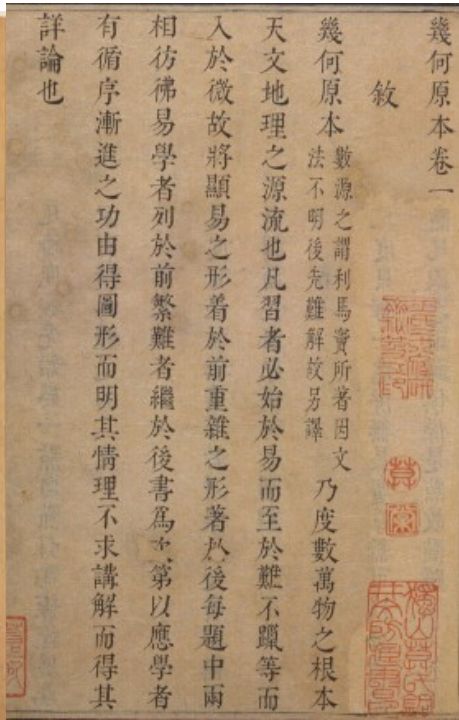 幾何原本卷一
敘
幾何原本
數源之謂利馬竇所著因文
法不明後先難解故另譯
乃度數萬物之根本
天文地理之源流也凡習者必始於易而至於難不躐等而
入於微故將顯易之形着於前重雜之形著於後每題中兩
相彷彿易學者列於前繁難者繼於後書爲次第以應學者
有循序漸進之功由得圖形而明其情理不求講解而得其
詳論也
莫棠